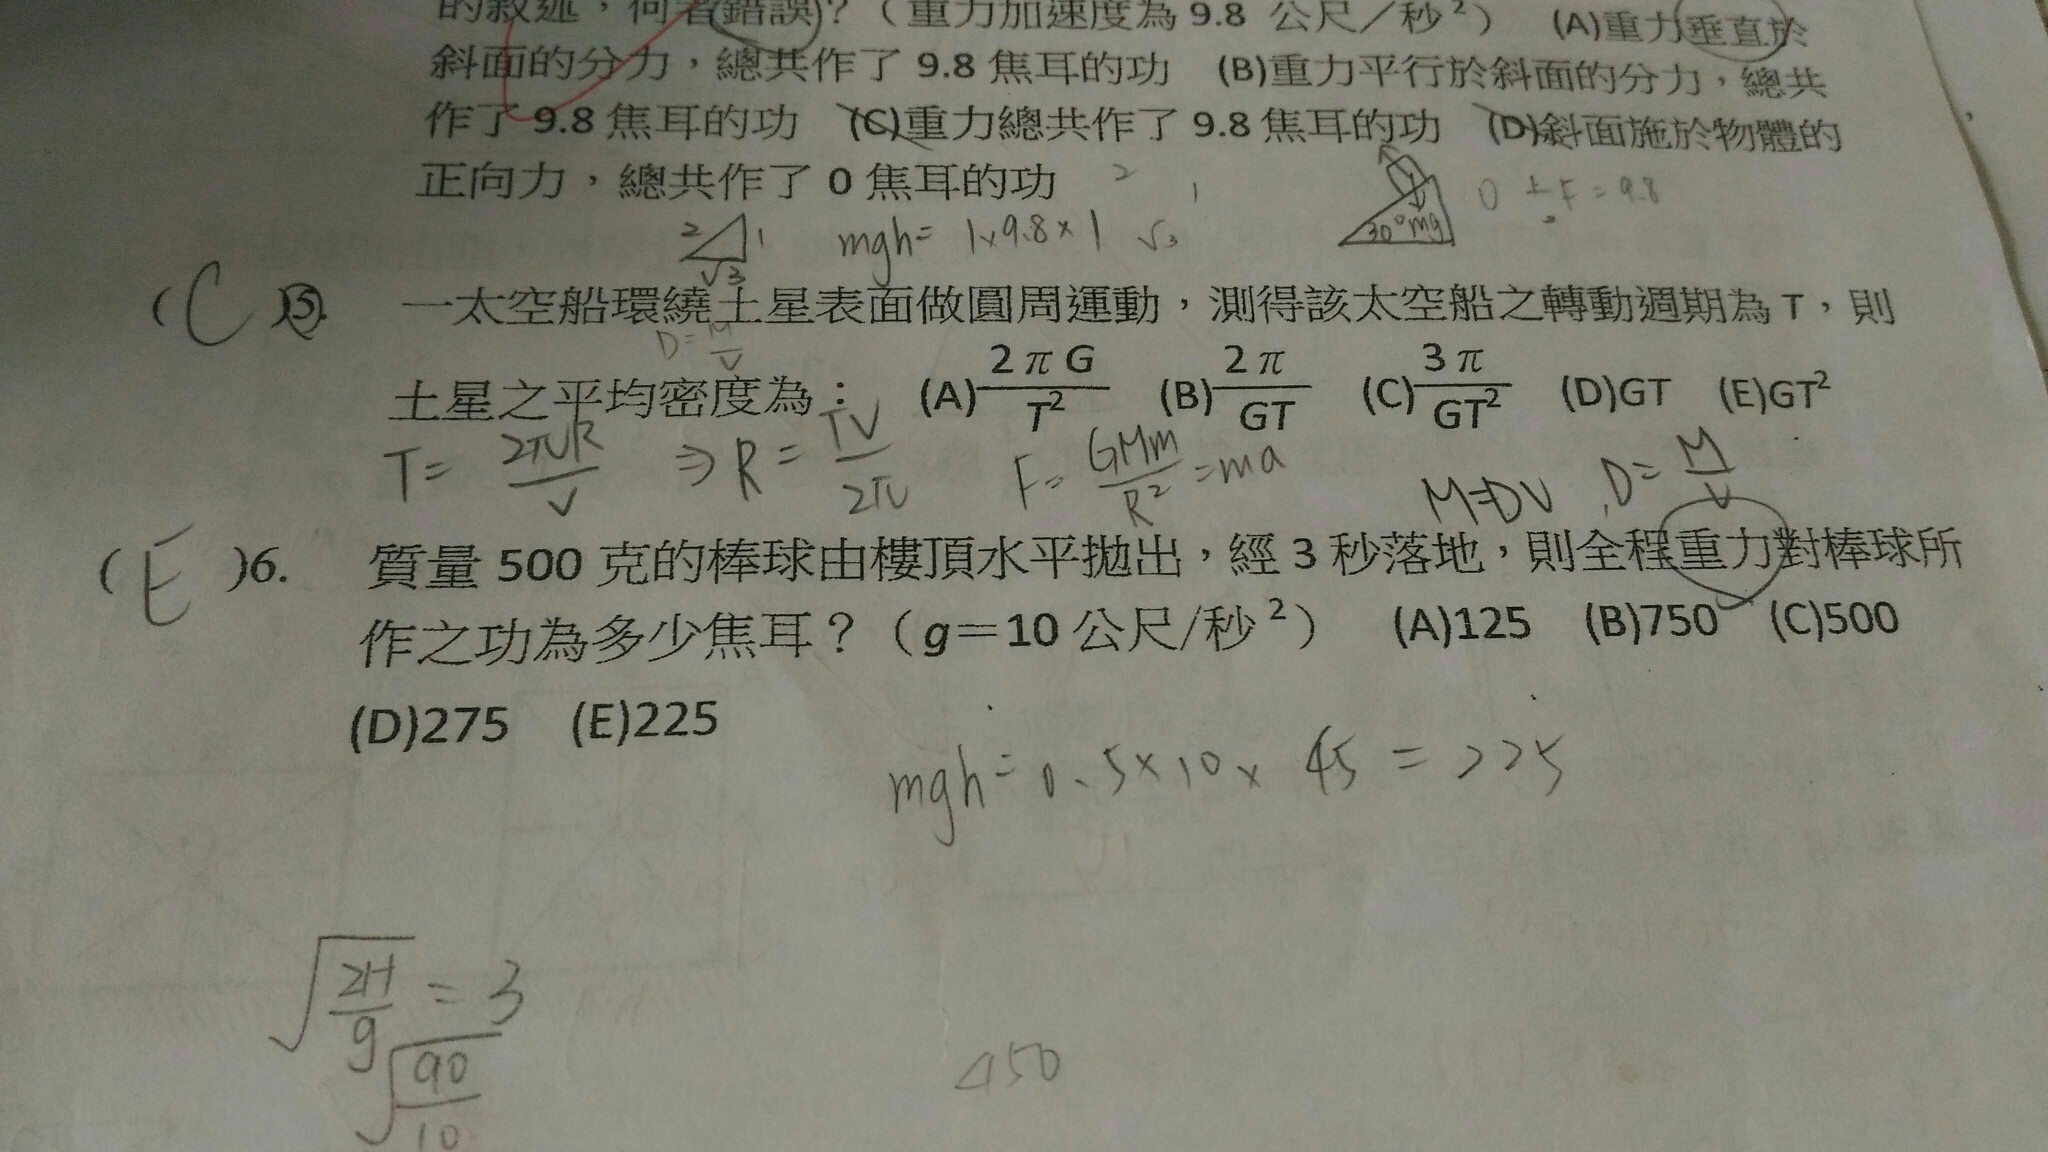 的敘述，何者錯誤？（重力加速度為 9.8 公尺／秒²） (A)重力垂直於
斜面的分力，總共作了 9.8 焦耳的功 (B)重力平行於斜面的分力，總共
作了 9.8 焦耳的功 (C)重力總共作了 9.8 焦耳的功 (D)斜面施於物體的
正向力，總共作了 0 焦耳的功
2 1 √3
mgh= 1×9.8×1
2 1 √3
30° mg
0 F=9.8
( C )5. 一太空船環繞土星表面做圓周運動，測得該太空船之轉動週期為 T，則
D=M/V
土星之平均密度為： (A)2πG/T² (B)2π/GT (C)3π/GT² (D)GT (E)GT²
T= 2πR/V ⇒ R= TV/2π F= GMm/R² =ma M=DV D= M/V
( E )6. 質量 500 克的棒球由樓頂水平拋出，經 3 秒落地，則全程重力對棒球所
作之功為多少焦耳？（g＝10 公尺/秒²） (A)125 (B)750 (C)500
(D)275 (E)225
mgh= 0.5×10× 45 = 225
√2H/g = 3
√90/10
450